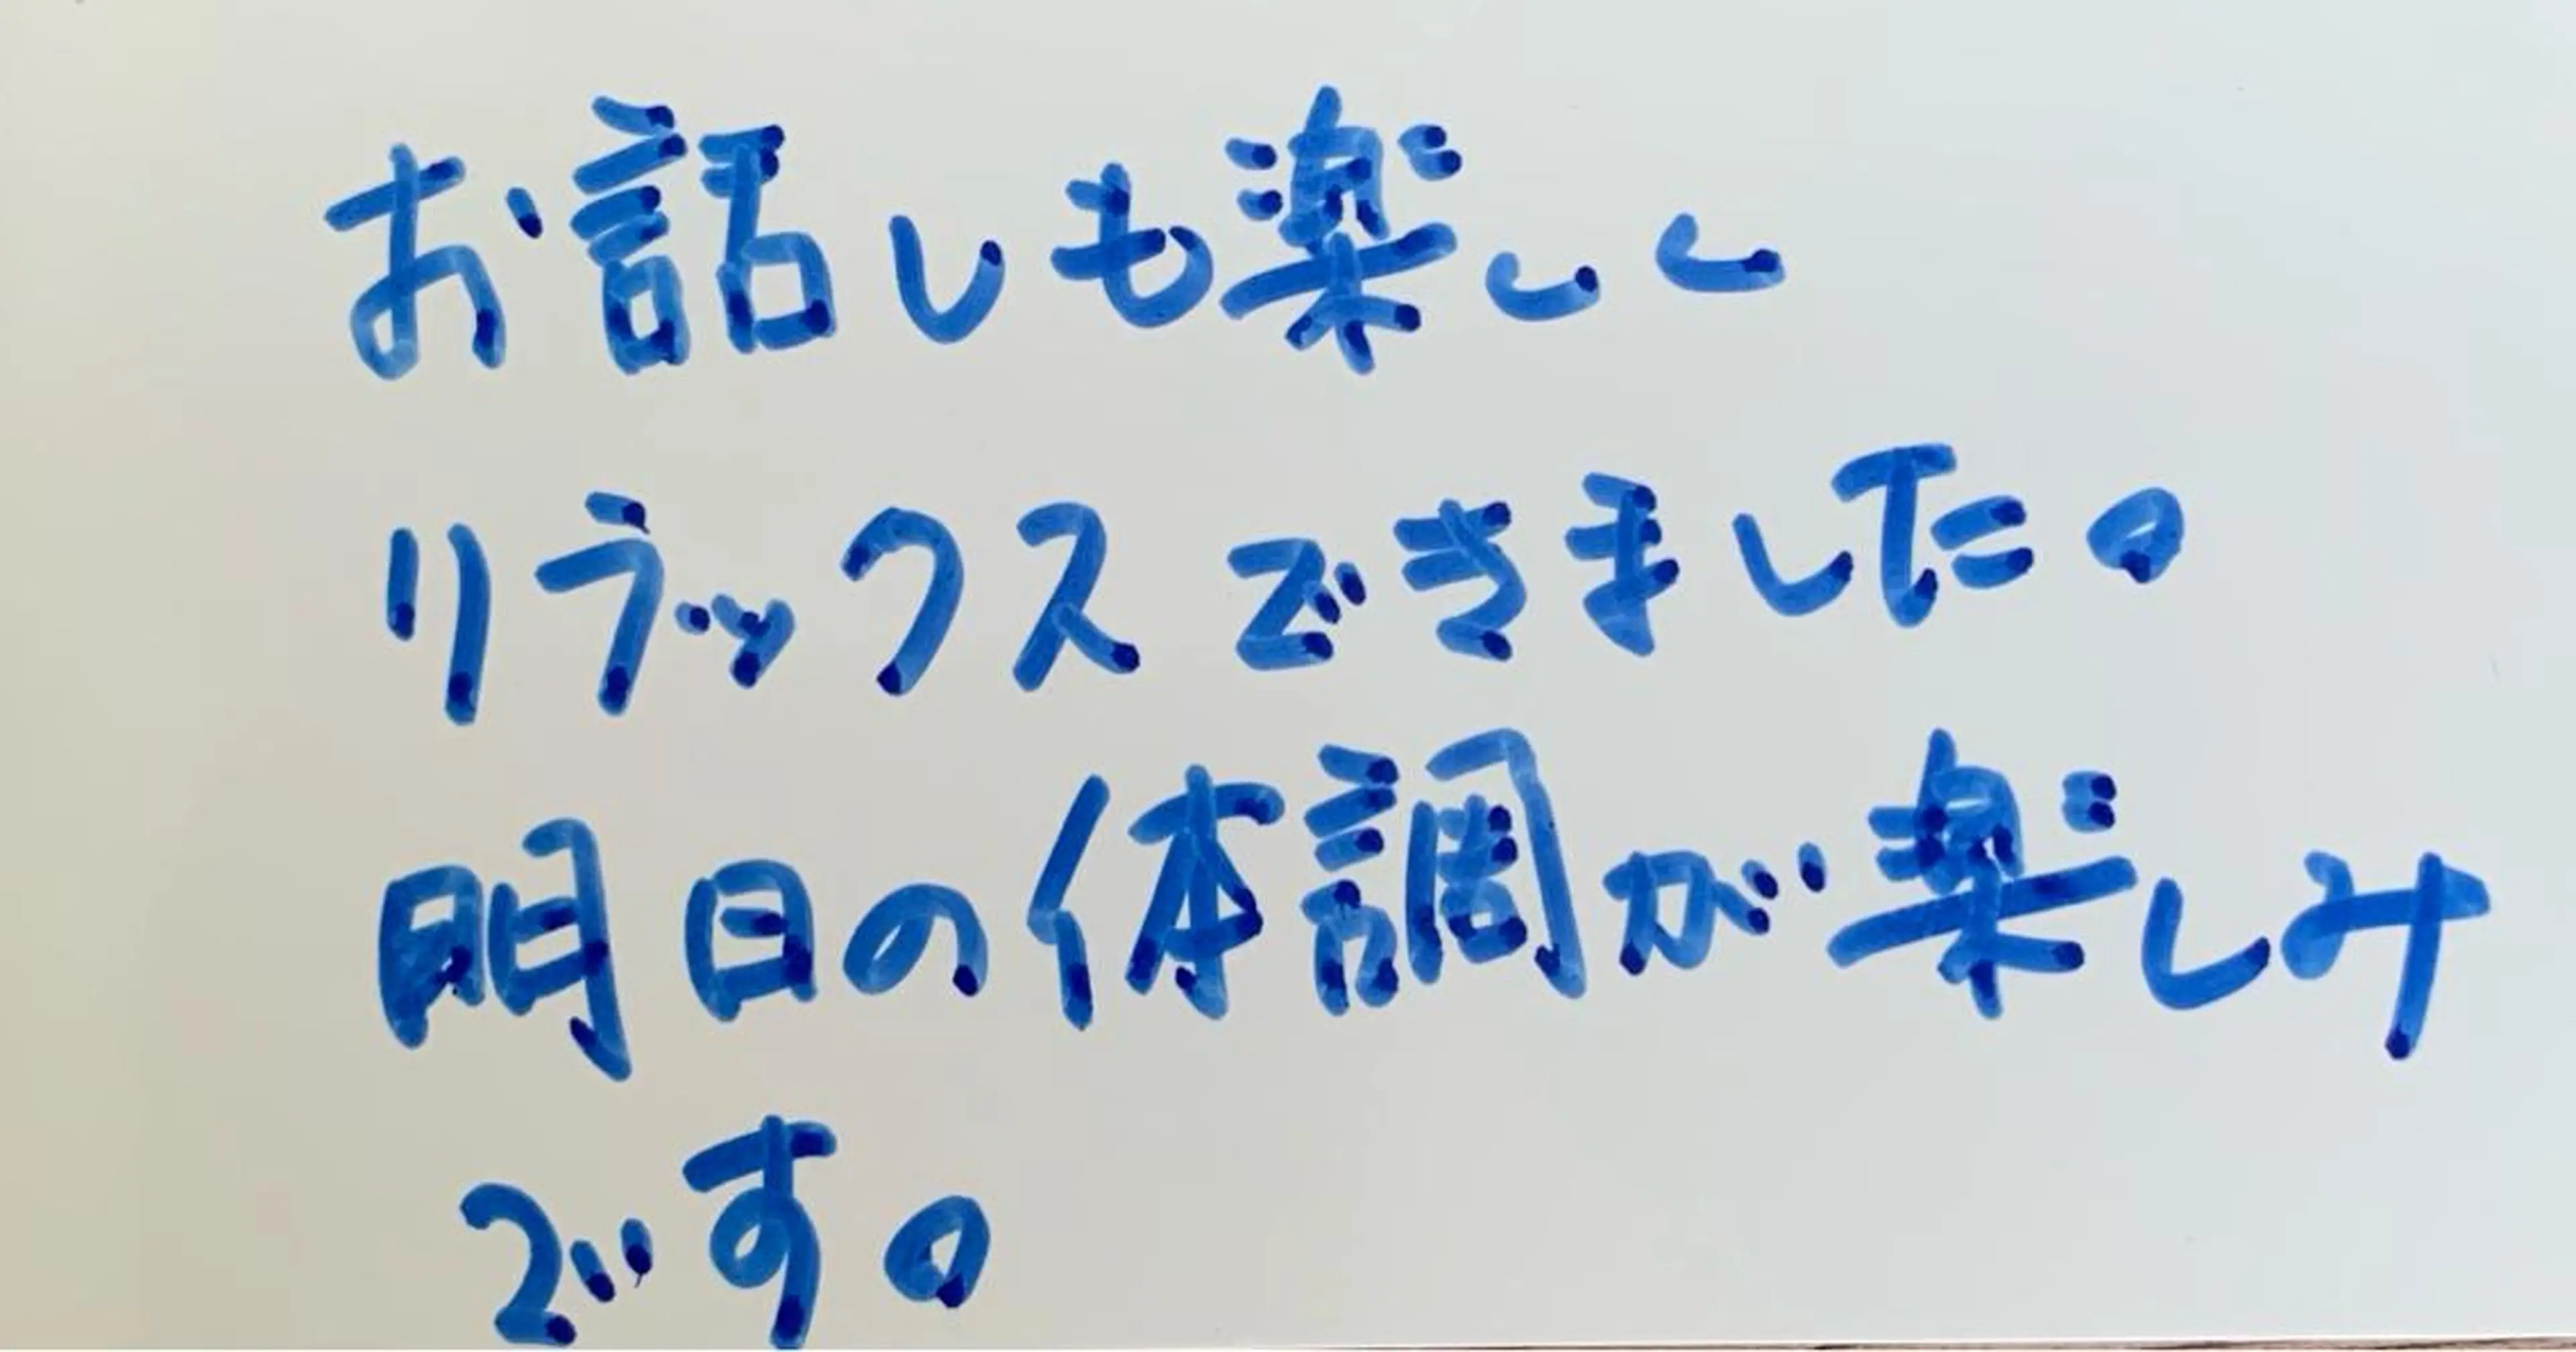 お話しも楽しく
リラックスできました。
明日の体調が楽しみ
です。